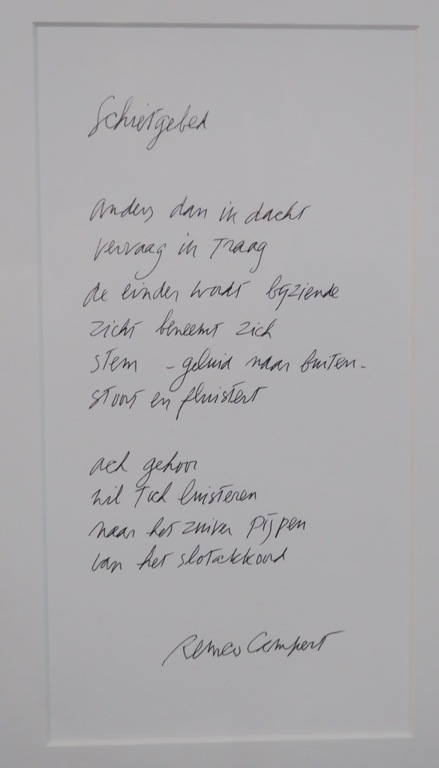 Schietgebed
anders dan ik dacht
vervaag ik traag
de einder wordt bijziende
zicht beneemt zich
stem - geluid naar buiten -
stoot en fluistert
ach gehoor
wil toch luisteren
naar het zuiver pijpen
van het slotakkoord
Remco Campert